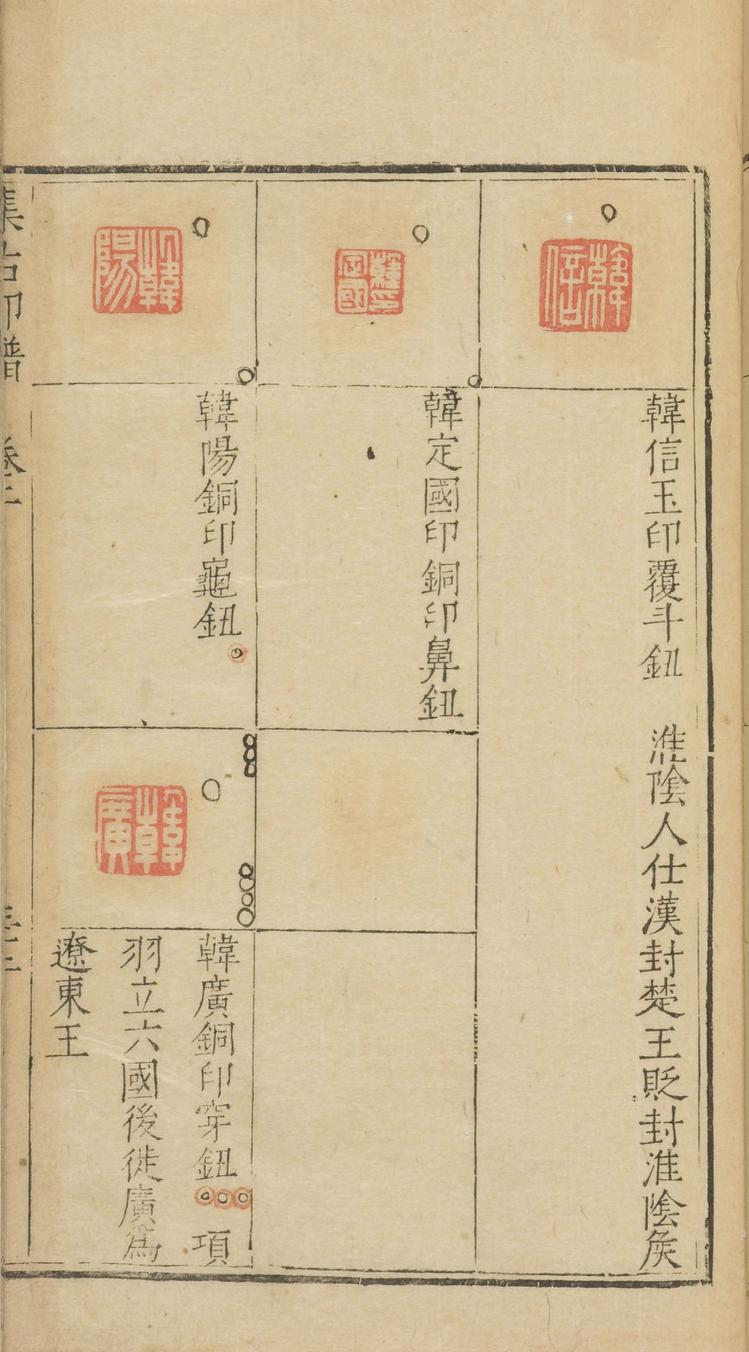 韓信
韓信玉印覆斗鈕　淮陰人仕漢封楚王貶封淮陰矦
韓定國印
韓定國印銅印鼻鈕
韓陽
韓陽銅印龜鈕
韓廣
韓廣銅印穿鈕　項
羽立六國後徙廣爲
遼東王
集古印譜　卷二